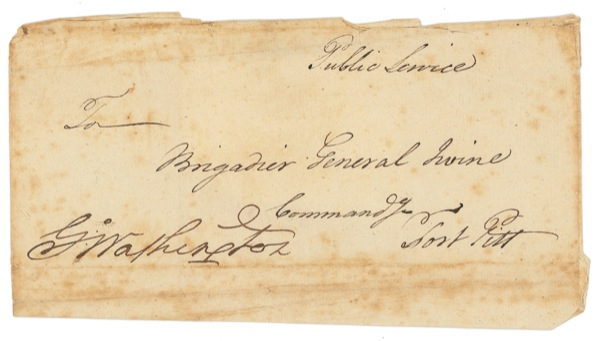 Public Service
To
Brigadier General Irvine
Commandg
Go Washington Fort Pitt